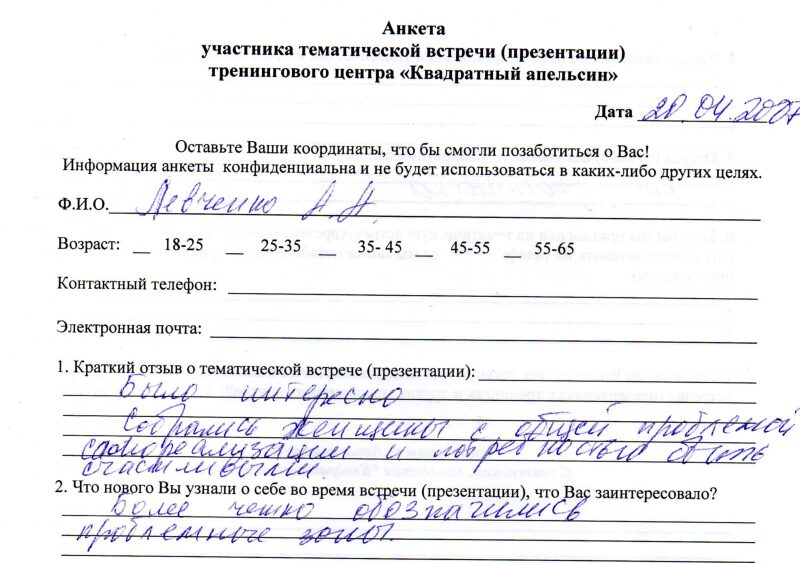 Анкета
участника тематической встречи (презентации)
тренингового центра «Квадратный апельсин»
Дата 20.04.2007
Оставьте Ваши координаты, что бы смогли позаботиться о Вас!
Информация анкеты конфиденциальна и не будет использоваться в каких-либо других целях.
Ф.И.О. Левченко А.Н.
Возраст: __ 18-25 __ 25-35 __ 35- 45 __ 45-55 __ 55-65
Контактный телефон:
Электронная почта:
1. Краткий отзыв о тематической встрече (презентации):
Было интересно
Собрались женщины с общей проблемой
самореализации и потребностью быть
счастливыми.
2. Что нового Вы узнали о себе во время встречи (презентации), что Вас заинтересовало?
Более четко обозначились
проблемные зоны.